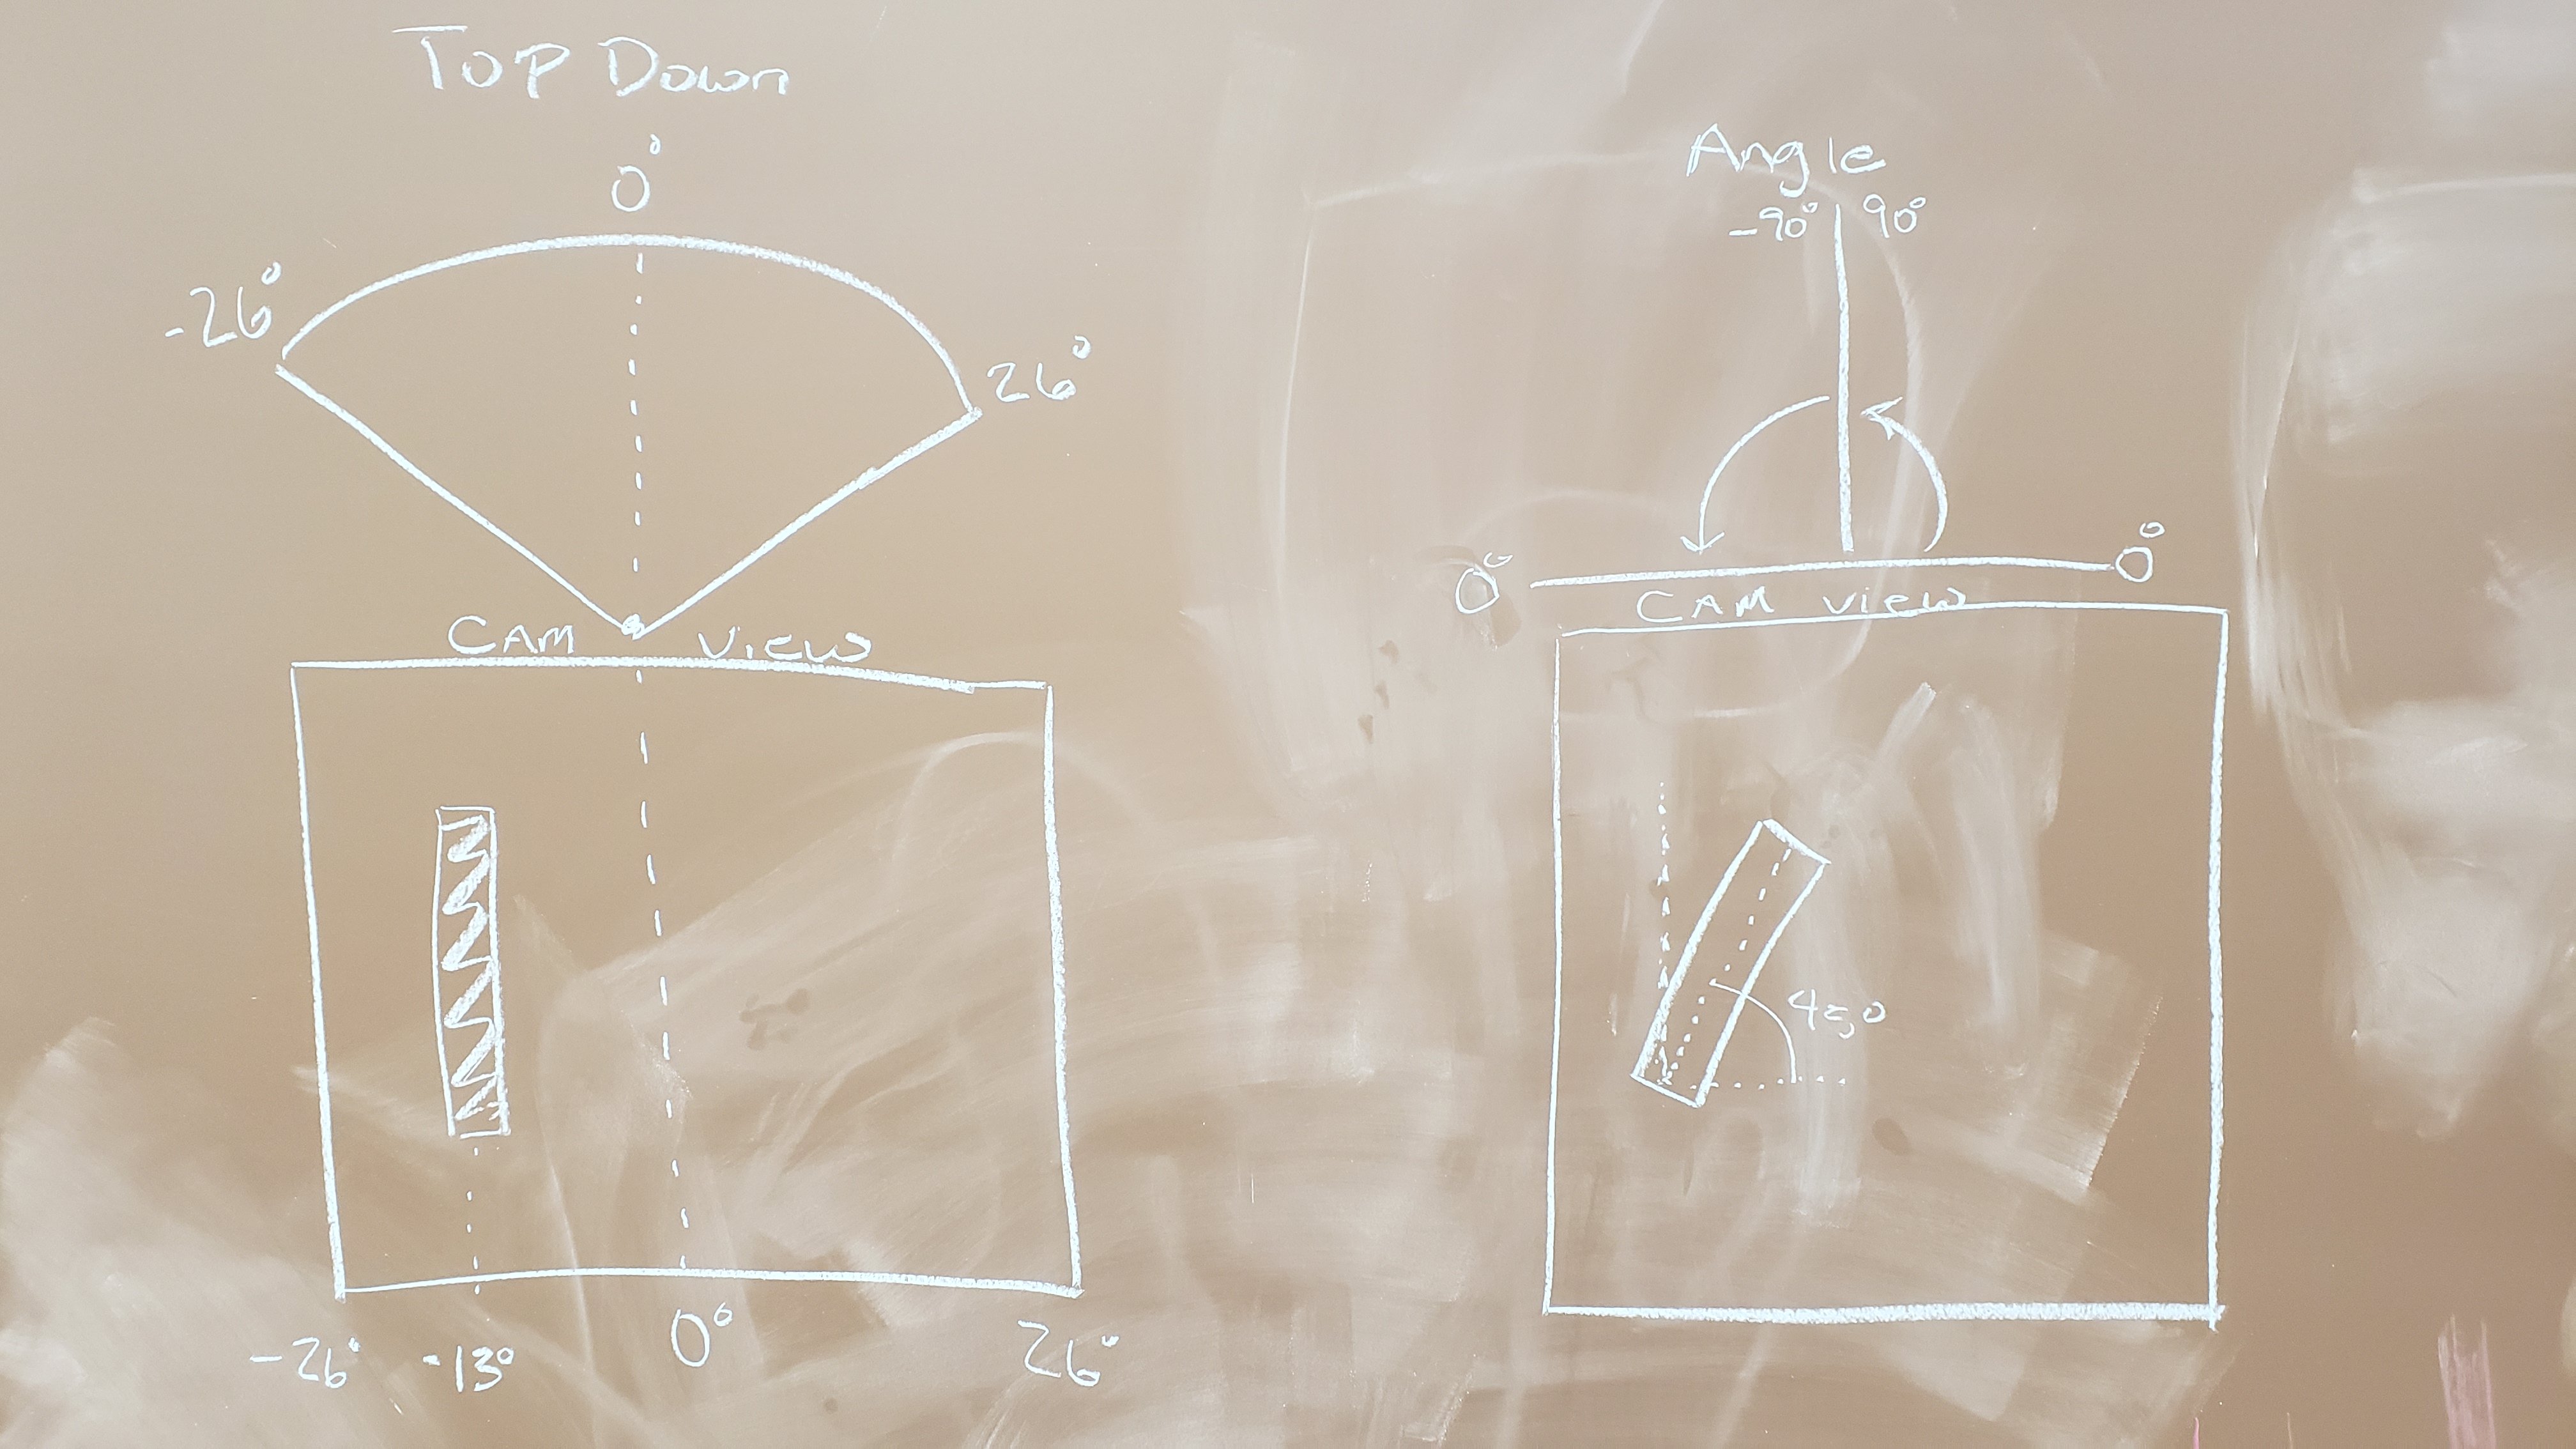 Top Down
0°
-26°
26°
CAM View
-26° -13° 0° 26°
Angle
-90° 90°
0° 0°
CAM View
45°